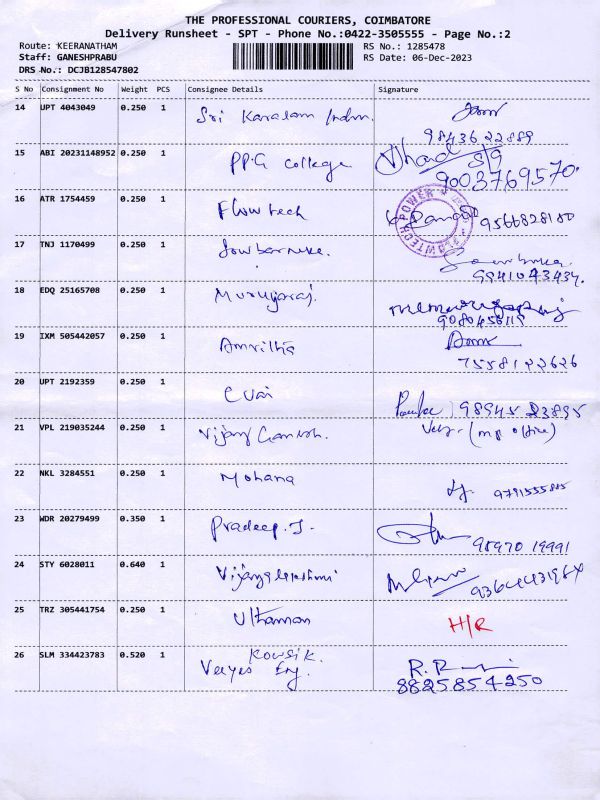 THE PROFESSIONAL COURIERS, COIMBATORE
Delivery Runsheet - SPT - Phone No.:0422-3505555 - Page No.:2
Route: KEERANATHAM
RS No.: 1285478
Staff: GANESHPRABU
RS Date: 06-Dec-2023
DRS No.: DCJB128547802
S No Consignment No Weight PCS Consignee Details Signature
14 UPT 4043049 0.250 1 Sri Karalam Indm.
98436 22889
15 ABI 20231148952 0.250 1 PPG college
9003769570.
16 ATR 1754459 0.250 1 Flowtech 9566828180
17 TNJ 1170499 0.250 1
9941043434.
18 EDQ 25165708 0.250 1 Murugaraj.
9080456119
19 IXM 505442057 0.250 1 Amritha
7558122626
20 UPT 2192359 0.250 1 Evai 98945 23895
21 VPL 219035244 0.250 1 Vijay Ganesh. (mp office)
22 NKL 3284551 0.250 1 Mohana
23 WDR 20279499 0.350 1 Pradeep.J.
95970 19991
24 STY 6028011 0.640 1 Vijayalakshmi
25 TRZ 305441754 0.250 1 Uthaman H/R
26 SLM 334423783 0.520 1 Kowsik.
8825854250